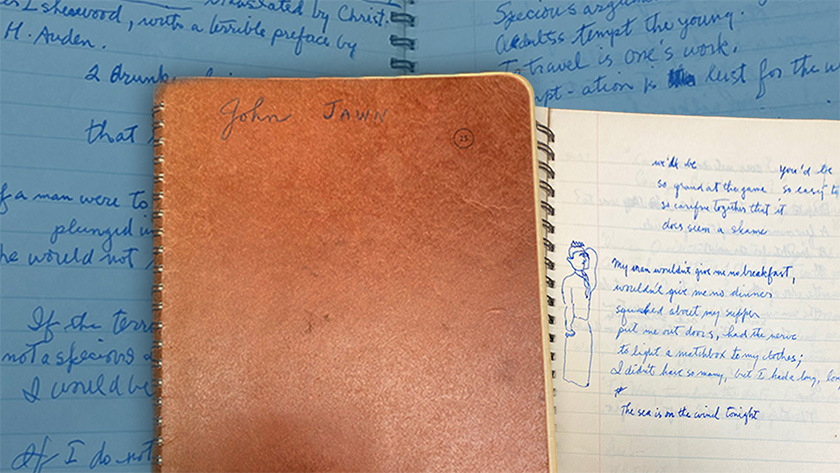 translated by Christ.
Isherwood, with a terrible preface by
H. Auden.
2 drunk
that
f a man were to
plunged in
he would not
If the terro
not a specious
I would be
If I do not
tempt the young.
To travel is one's work.
lust for the w
John JAWN
25
we'd be you'd be
so grand at the game so easy t
so carefree together that it
does seem a shame
My man wouldn't give me no breakfast,
wouldn't give me no dinner
squawked about my supper
put me out doors, had the nerve
to light a matchbox to my clothes;
I didn't have so many, but I had a long, lon
The sea is on the wind tonight